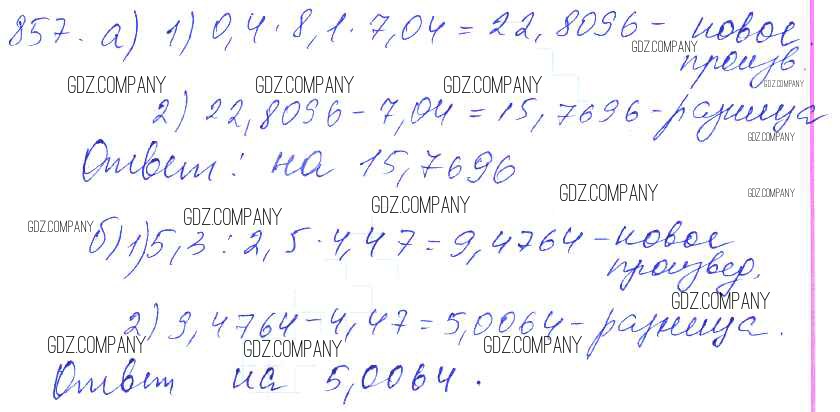 857. а) 1) 0,4 · 8,1 · 7,04 = 22,8096 - новое
GDZ.COMPANY
произв.
GDZ.COMPANY GDZ.COMPANY GDZ.COMPANY GDZ.COMPANY
2) 22,8096 - 7,04 = 15,7696 - разница
GDZ.COMPANY
Ответ: на 15,7696
GDZ.COMPANY GDZ.COMPANY
GDZ.COMPANY GDZ.COMPANY GDZ.COMPANY
б) 1) 5,3 : 2,5 · 4,47 = 9,4764 - новое
произвед.
GDZ.COMPANY
2) 9,4764 - 4,47 = 5,0064 - разница.
GDZ.COMPANY GDZ.COMPANY GDZ.COMPANY
Ответ на 5,0064.